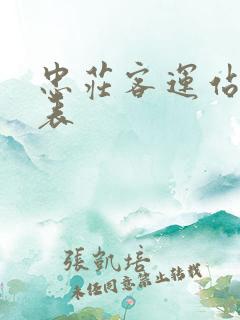 忠莊客運站
表
張凱培
未經同意禁止轉載